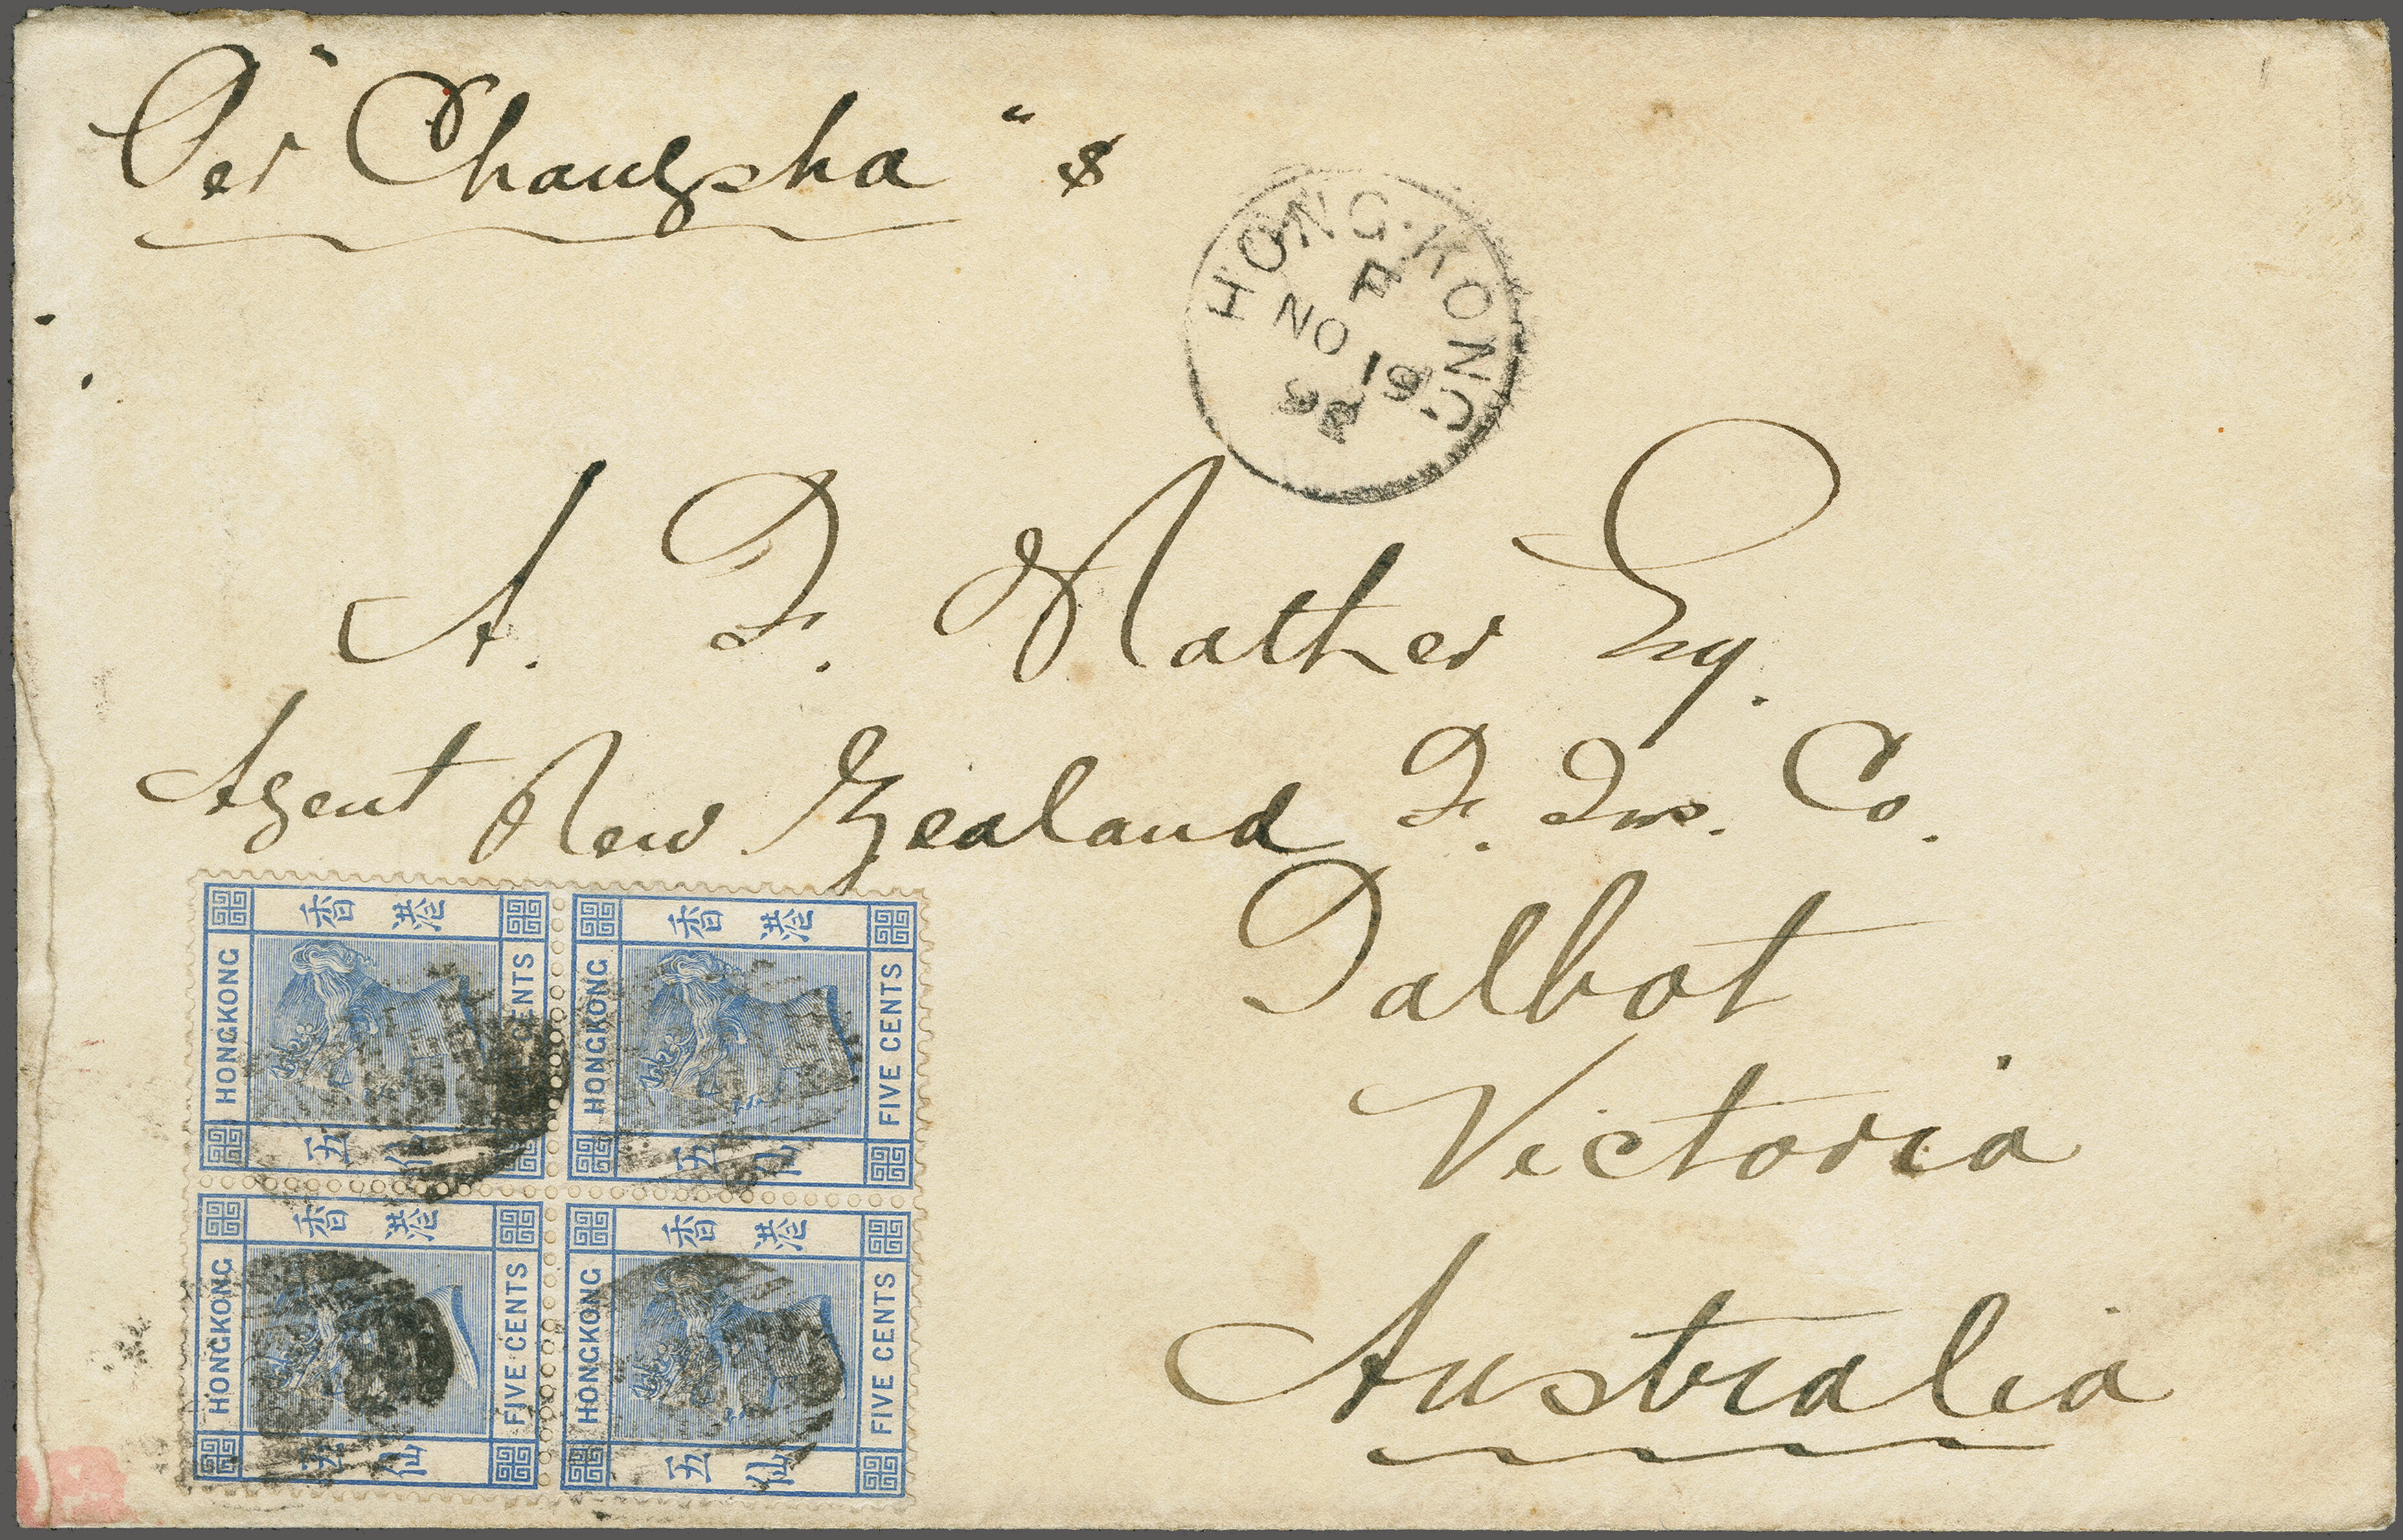 Per "Changsha" &
HONG·KONG
F
NO 19
A. F. Mather Esq.
Agent New Zealand F. Ins. Co.
Talbot
Victoria
Australia
香港
HONGKONG
FIVE CENTS
五仙
香港
HONGKONG
FIVE CENTS
五仙
香港
HONGKONG
FIVE CENTS
五仙
香港
HONGKONG
FIVE CENTS
五仙